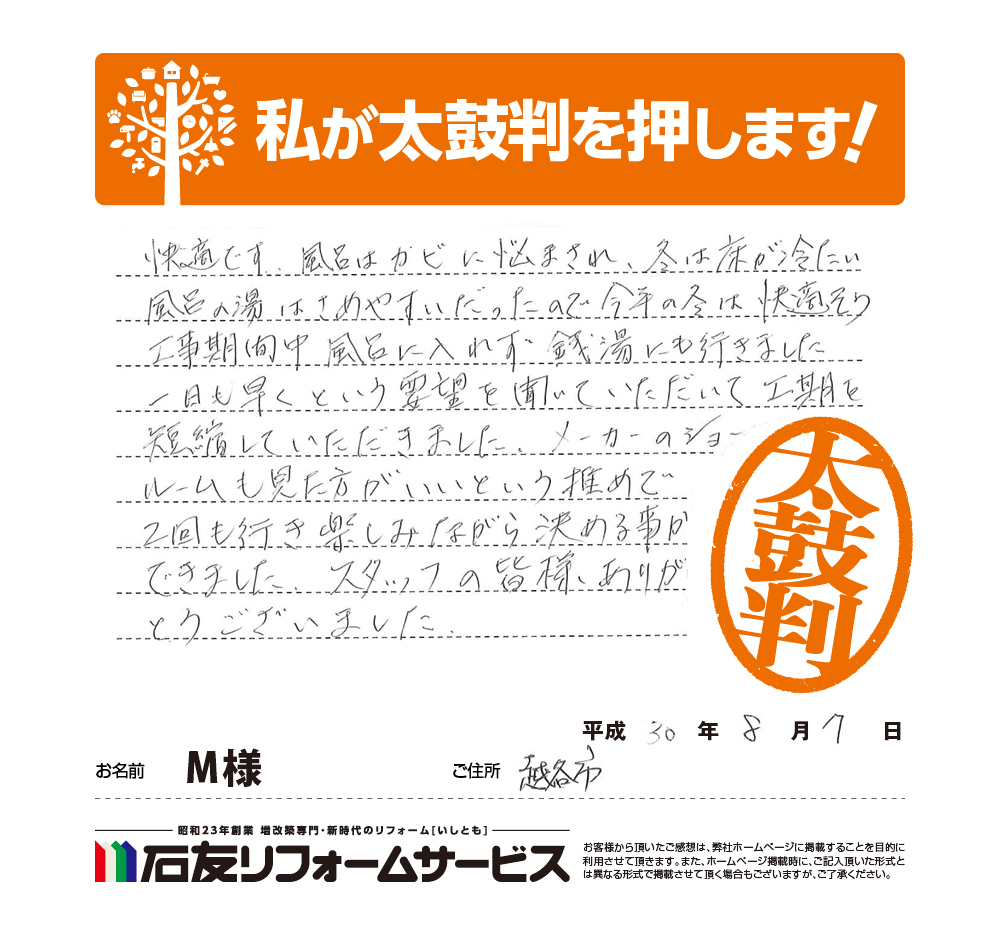 私が太鼓判を押します!
快適です、風呂はカビに悩まされ、冬は床が冷たい
風呂の湯はさめやすいだったので今年の冬は快適そう
工事期間中風呂に入れず銭湯にも行きました
一日も早くという要望を聞いていただいて工期を
短縮していただきました、メーカーのショー
ルームも見た方がいいという推めで
2回も行き楽しみながら決める事が
できました、スタッフの皆様、ありが
とうございました、
太鼓判
平成 30 年 8 月 7 日
お名前 M様 ご住所 越谷市
昭和23年創業 増改築専門・新時代のリフォーム[いしとも]
石友リフォームサービス
お客様から頂いたご感想は、弊社ホームページに掲載することを目的に
利用させて頂きます。また、ホームページ掲載時に、ご記入頂いた形式と
は異なる形式で掲載させて頂く場合もございますが、ご了承ください。